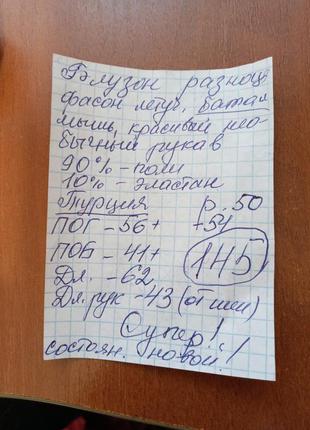 Блузон разноцв
фасон летуч. батал
мышь, красивый нео-
бычный рукав
90% - поли
10% - эластан
Турция р. 50
ПОГ - 56+ +54
ПОБ - 41+ 145
Дл. - 62
Дл. рук - 43 (от шеи)
Супер!
состоян. новой!